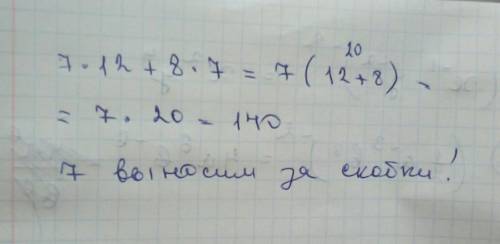 20
7 · 12 + 8 · 7 = 7 ( 12 + 8 ) =
= 7 · 20 = 140
7 выносим за скобки!